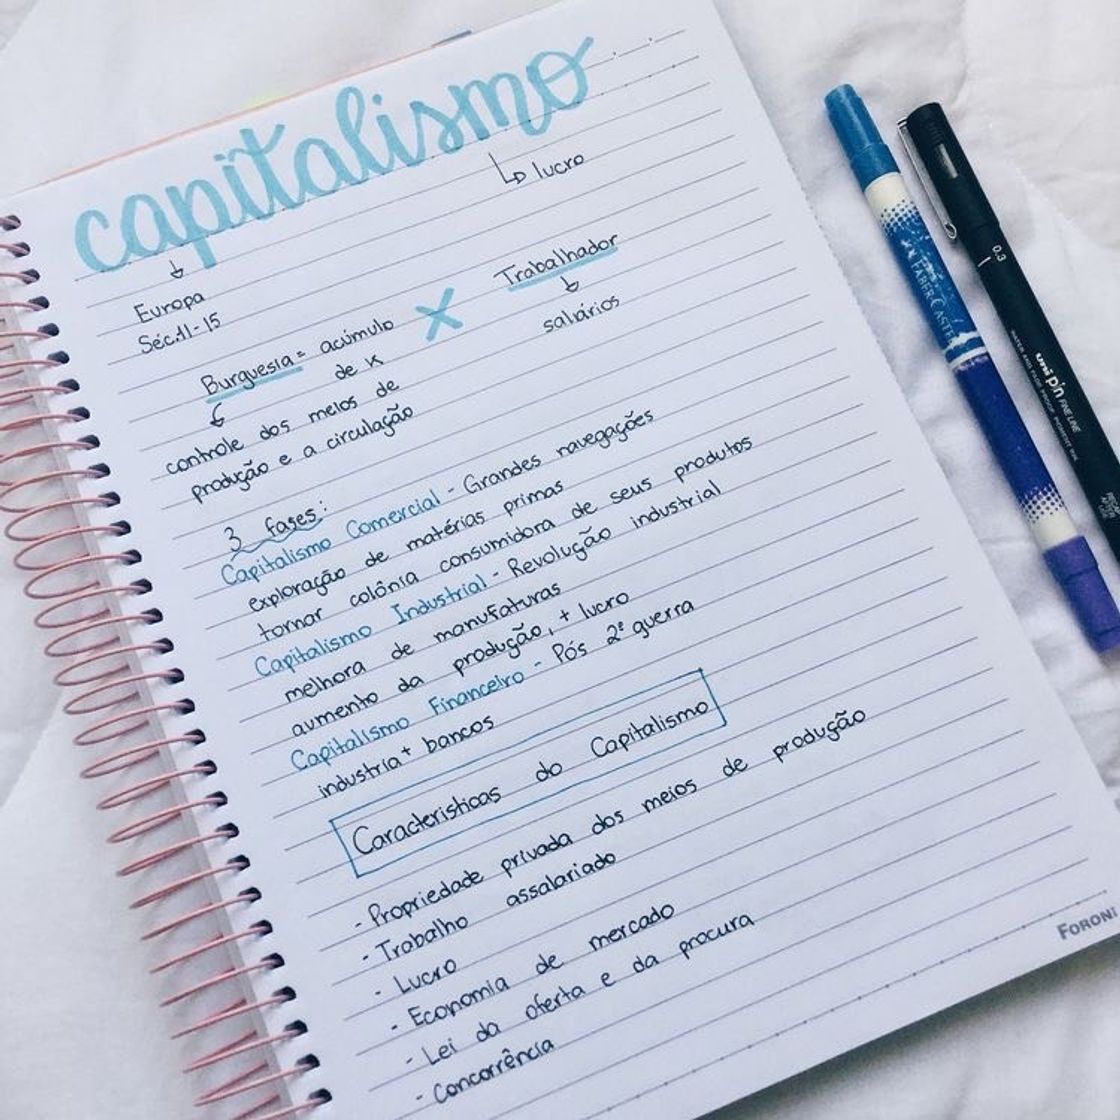 capitalismo
↳ lucro
↓
Europa
Séc.11-15
Burguesia = acúmulo
de K
controle dos meios de
produção e a circulação
X
Trabalhador
↳
salários
3 fases:
Capitalismo Comercial - Grandes navegações
exploração de matérias primas
tornar colônia consumidora de seus produtos
Capitalismo Industrial - Revolução industrial
melhora de manufaturas
aumento da produção, + lucro
Capitalismo Financeiro - Pós 2ª guerra
industria + bancos
Caracteristicas do Capitalismo
- Propriedade privada dos meios de produção
- Trabalho assalariado
- Lucro
- Economia de mercado
- Lei da oferta e da procura
- Concorrência
FORONI
FABER-CASTELL
0.3
uni pin FINE LINE
WATER AND FADE PROOF, PIGMENT INK